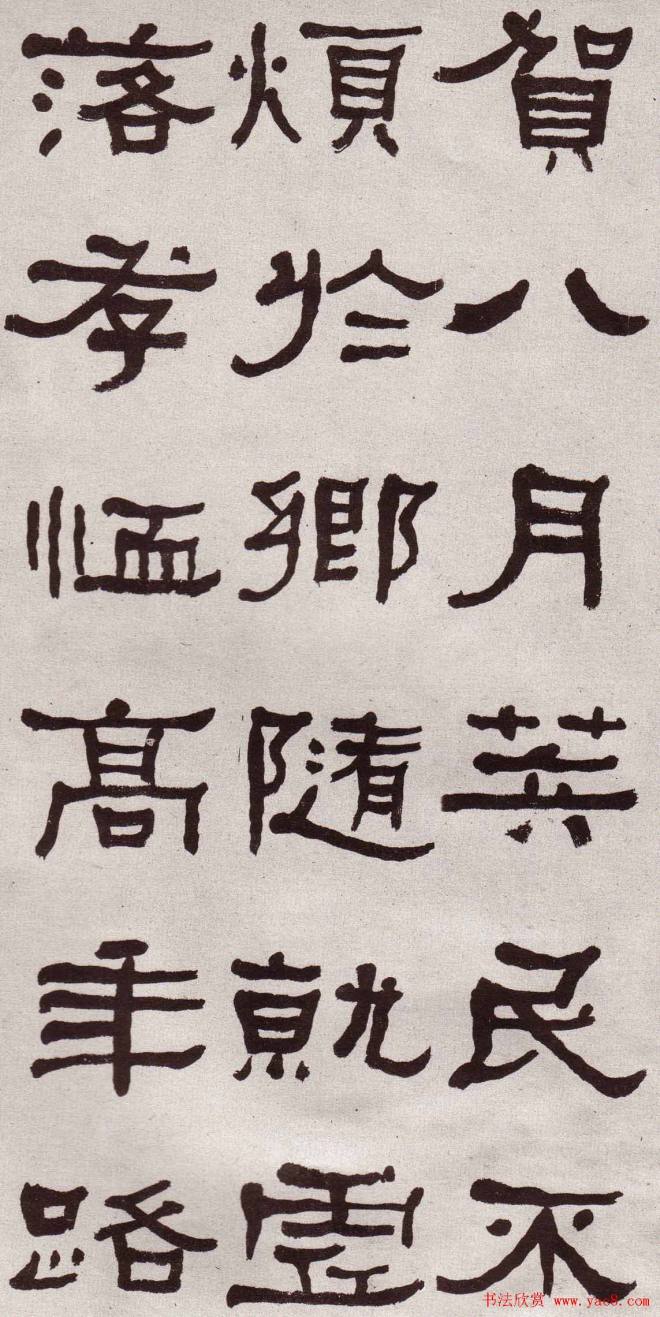 賀八月筭民不
煩於鄉隨就虛
落存恤高年路
书法欣赏 www.yac8.com